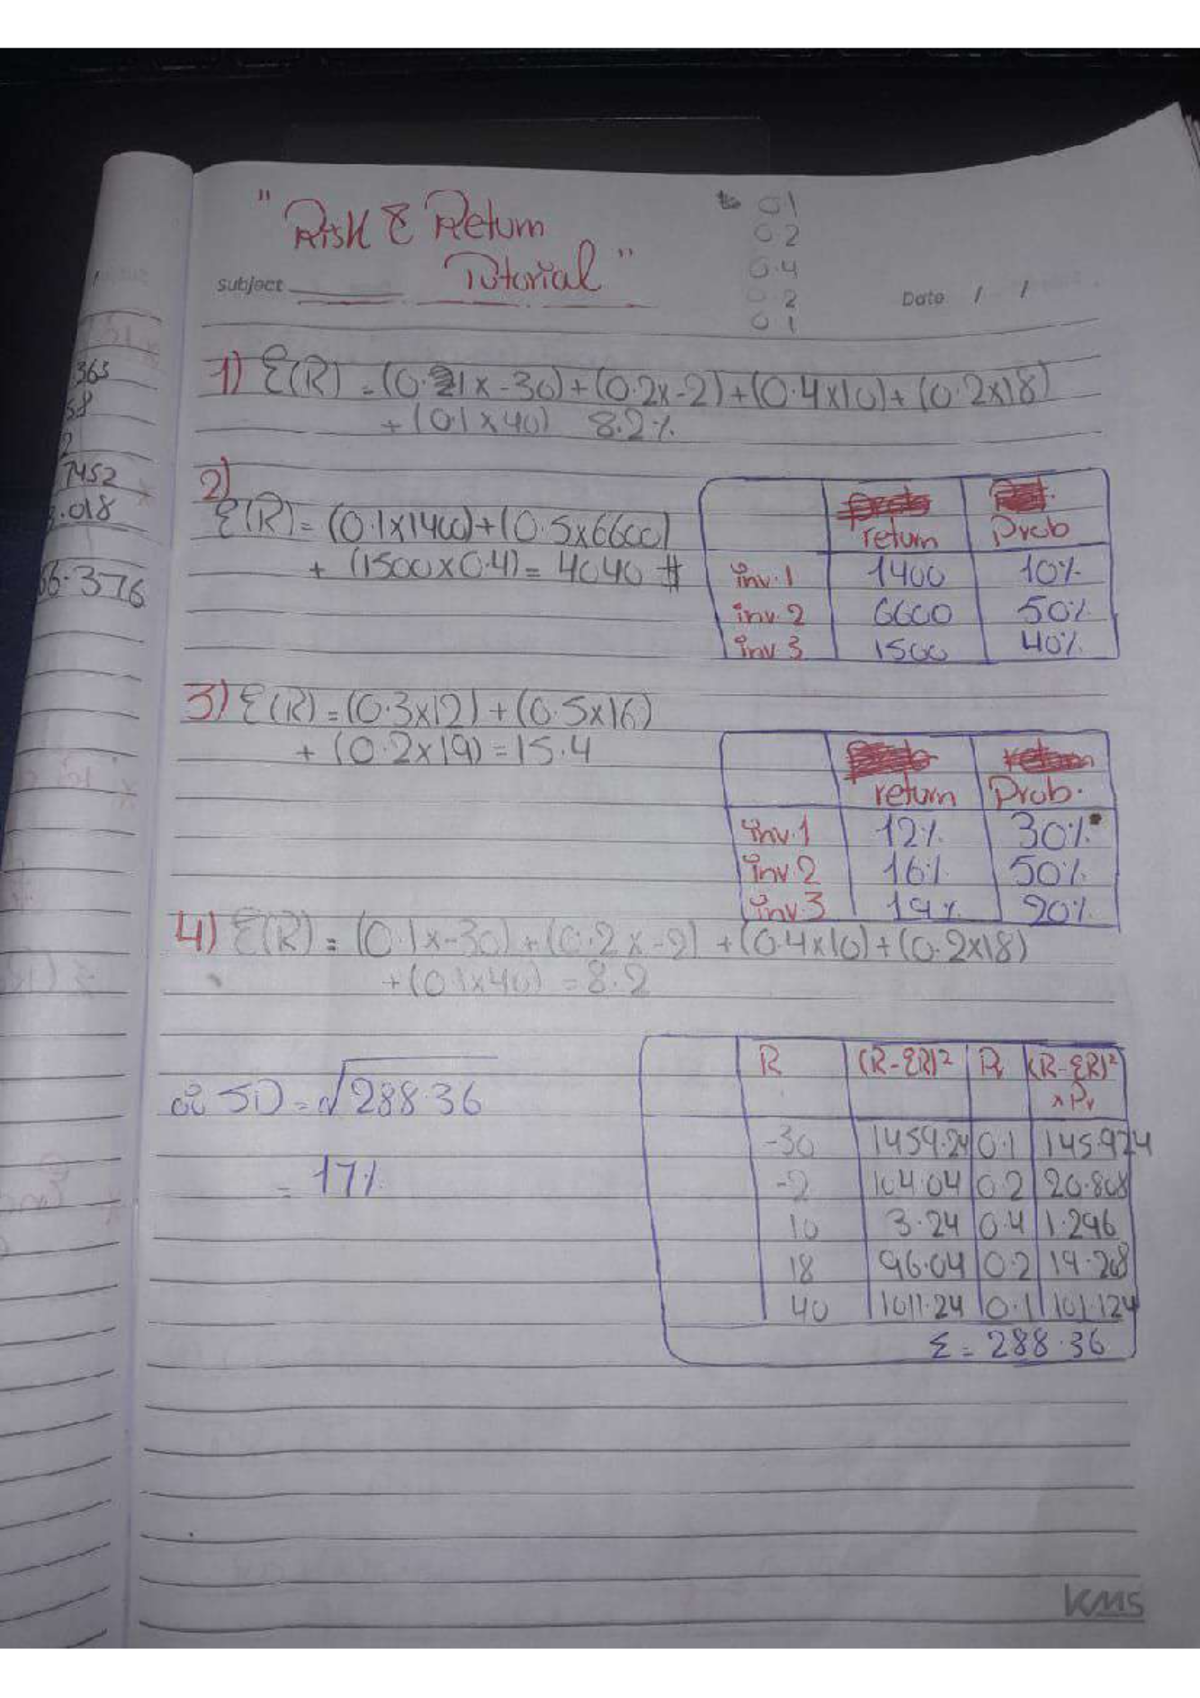 " Risk & Return
Tutorial "
Subject
Date / /
0.1
0.2
0.4
0.2
0.1
365
58
2
7452
.018
56.376
1) E(R) = (0.1x-30)+(0.2x-2)+(0.4x10)+(0.2x18)
+(0.1x40) 8.2%
2)
E(R) = (0.1x1400)+(0.5x6600)
+ (1500x0.4) = 4040 #
return Prob
inv.1 1400 10%
inv.2 6600 50%
inv 3 1500 40%
3) E(R) = (0.3x12)+(0.5x16)
+ (0.2x19) = 15.4
return Prob.
inv.1 12% 30%
inv.2 16% 50%
inv.3 19% 20%
4) E(R) = (0.1x-30)+(0.2x-2)+(0.4x10)+(0.2x18)
+(0.1x40) = 8.2
R (R-ER)² Pr (R-ER)²
x Pr
-30 1459.24 0.1 145.924
-2 104.04 0.2 20.808
10 3.24 0.4 1.296
18 96.04 0.2 19.208
40 1011.24 0.1 101.124
Σ = 288.36
SD = √288.36
= 17%
KMS